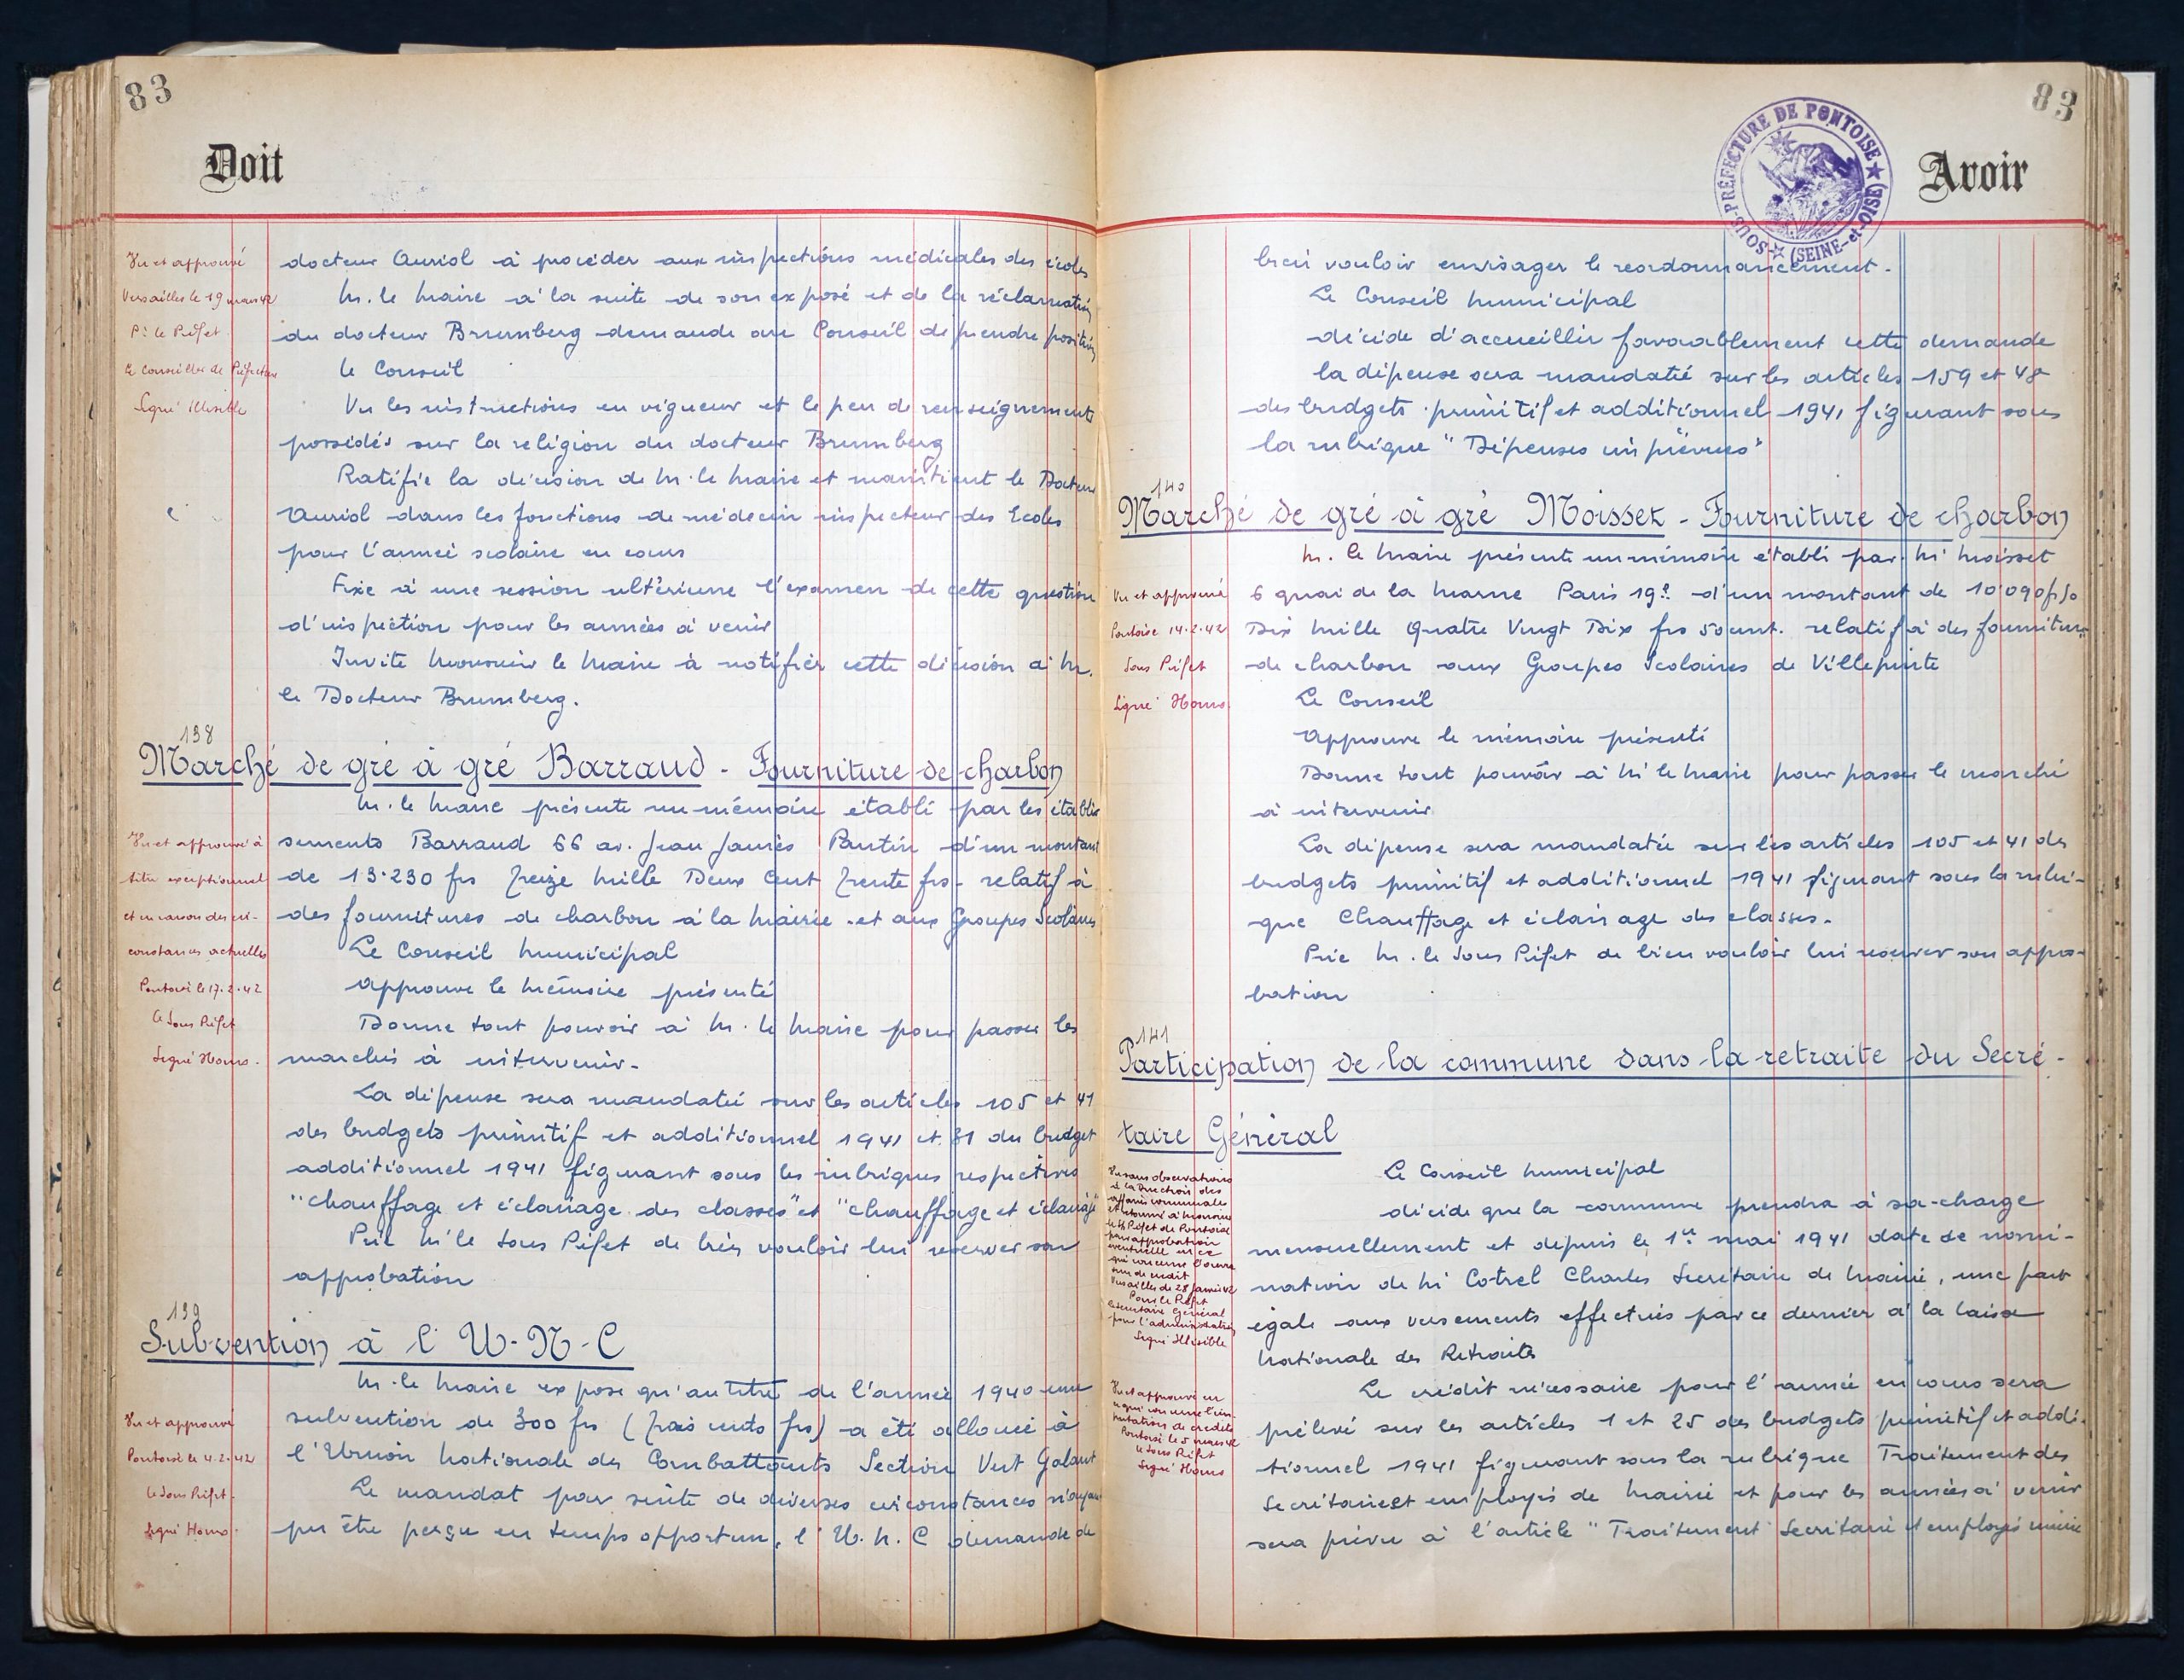 83
Doit
Vu et approuvé
Versailles le 19 mars 42
Pr le Préfet
Le Conseiller de Préfecture
Signé Illisible
docteur Auriol à procéder aux inspections médicales des écoles
M. le Maire à la suite de son exposé et de la réclamation
du docteur Brumberg demande au Conseil de prendre position
Le Conseil
Vu les instructions en vigueur et le peu de renseignements
possédés sur la religion du docteur Brumberg
Ratifie la décision de M. le Maire et maintient le Docteur
Auriol dans les fonctions de médecin inspecteur des Ecoles
pour l'année scolaire en cours
Fixe à une session ultérieure l'examen de cette question
d'inspection pour les années à venir
Invite Monsieur le Maire à notifier cette décision à M.
le Docteur Brumberg.
138
Marché de gré à gré Barraud - Fourniture de charbon
Vu et approuvé à
titre exceptionnel
et en raison des cir-
constances actuelles
Pontoise le 17.2.42
Le Sous Préfet
Signé Homo.
M. le Maire présente un mémoire établi par les établis
sements Barraud 66 av. Jean Jaurès Pantin d'un montant
de 13.230 frs Treize Mille Deux Cent Trente frs - relatif à
des fournitures de charbon à la Mairie et aux Groupes Scolaires
Le Conseil Municipal
Approuve le Mémoire présenté
Donne tout pouvoir à M. le Maire pour passer les
marchés à intervenir.
La dépense sera mandatée sur les articles 105 et 41
des budgets primitif et additionnel 1941 et 31 du budget
additionnel 1941 figurant sous les rubriques respectives
"chauffage et éclairage des classes" et "chauffage et éclairage"
Prie M' le Sous Préfet de bien vouloir lui réserver son
approbation
139
Subvention à l'U-N-C
Vu et approuvé
Pontoise le 4.2.42
Le Sous Préfet.
Signé Homo.
M. le Maire expose qu'au titre de l'année 1940 une
subvention de 300 frs (trois cents frs) a été allouée à
l'Union Nationale des Combattants Section Vert Galant
Le mandat par suite de diverses circonstances n'ayant
pu être perçu en temps opportun, l'U.N.C demande de
83
Avoir
SOUS-PRÉFECTURE DE PONTOISE (SEINE-et-OISE)
bien vouloir envisager le reordonnancement.
Le Conseil Municipal
décide d'accueillir favorablement cette demande
la dépense sera mandatée sur les articles 159 et 48
des budgets primitif et additionnel 1941 figurant sous
la rubrique "Dépenses imprévues"
140
Marché de gré à gré Moisset - Fourniture de charbon
Vu et approuvé
Pontoise 14.2.42
Sous Préfet
Signé Homo
M. le Maire présente un mémoire établi par M' Moisset
6 quai de la Marne Paris 19e d'un montant de 10 090f50
Dix Mille Quatre Vingt Dix frs 50 cent. relatif à des fournitures
de charbon aux Groupes Scolaires de Villepinte
Le Conseil
Approuve le mémoire présenté
Donne tout pouvoir à M' le Maire pour passer le marché
à intervenir
La dépense sera mandatée sur les articles 105 et 41 des
budgets primitif et additionnel 1941 figurant sous la rubri-
que Chauffage et éclairage des classes.
Prie M. le Sous Préfet de bien vouloir lui réserver son appro-
bation
141
Participation de la commune dans la retraite du Secré-
taire Général
Vu sans observations
à la Direction des
affaires communales
et retourné à Monsieur
le S/Préfet de Pontoise
pour approbation
éventuelle en ce
qui concerne l'ouver
ture de crédit
Versailles de 28 Janvier 42
Pour le Préfet
Le Secrétaire Général
pour l'administration
Signé Illisible
Le Conseil Municipal
décide que la commune prendra à sa charge
mensuellement et depuis le 1er mai 1941 date de nomi-
nation de M' Cotrel Charles Secrétaire de Mairie, une part
égale aux versements effectués par ce dernier à la Caisse
Nationale des Retraites
Vu et approuvé en
ce qui concerne l'im-
putation de crédits
Pontoise le 5 mars 42
Le Sous Préfet
Signé Homo
Le crédit nécessaire pour l'année en cours sera
prélevé sur les articles 1 et 25 des budgets primitif et addi-
tionnel 1941 figurant sous la rubrique Traitement des
Secrétaires et employés de Mairie et pour les années à venir
sera prévu à l'article "Traitement Secrétaire et employés mairie